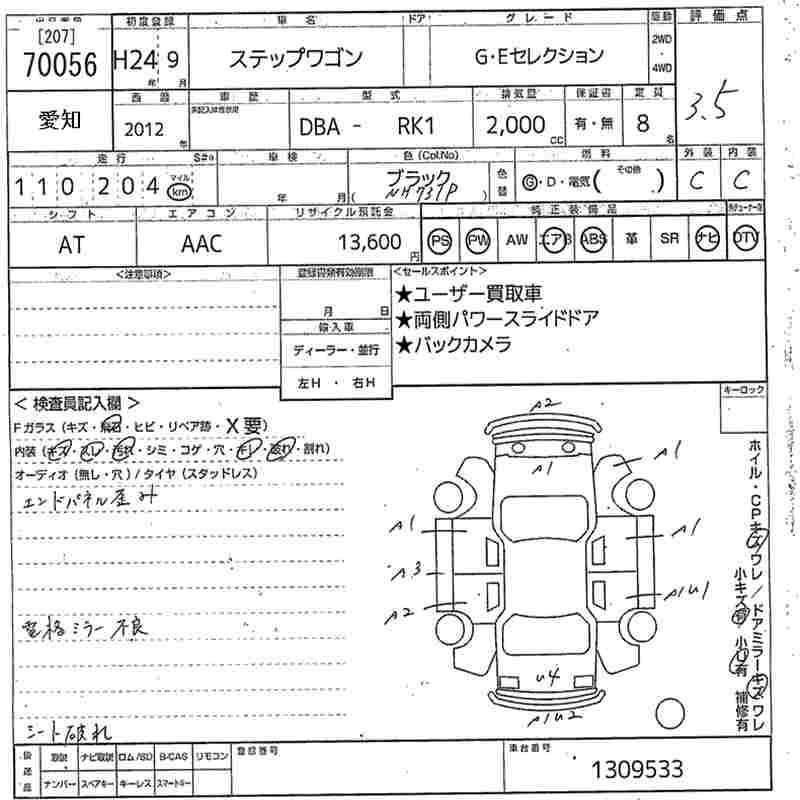 出品番号 初度登録 車名 ドア グレード 駆動 評価点
[207]
70056 H24 9 ステップワゴン G・Eセレクション 2WD・4WD 3.5
年 月
西暦 車歴 型式 排気量 保証書 定員
愛知 2012 年 DBA - RK1 2,000 CC 有・無 8 名
走行 S#a 車検 色(Col.No) 燃料 外装 内装
110204 マイル km 年 月 ブラック NH731P 色替 G・D・電気( その他 ) C C
シフト エアコン リサイクル預託金 純正装備品
AT AAC 13,600 円 PS PW AW エアB ABS 革 SR ナビ DTV
<注意事項> <セールスポイント>
★ユーザー買取車
月 日 ★両側パワースライドドア
輸入車
★バックカメラ
ディーラー・並行
左H ・ 右H
キーロック
<検査員記入欄>
Fガラス(キズ・飛石・ヒビ・リペア跡・X要)
内装(キズ・スレ・汚れ・シミ・コゲ・穴・破れ・割れ)
オーディオ(無し・穴)/タイヤ(スタッドレス)
エンドパネル歪み
格ミラー不良
シート破れ
A2
A1
A1
A1
A1
A3
A2
A1U1
U4
A1U2
ホイル・CPキズワレ/ドアミラーキズワレ
小キズ有 小U有 補修有
後送品 取説 ナビ取説 ロム/SD B-CAS リモコン 登録番号 車台番号
ナンバー スペアキー キーレス スマートキー 1309533